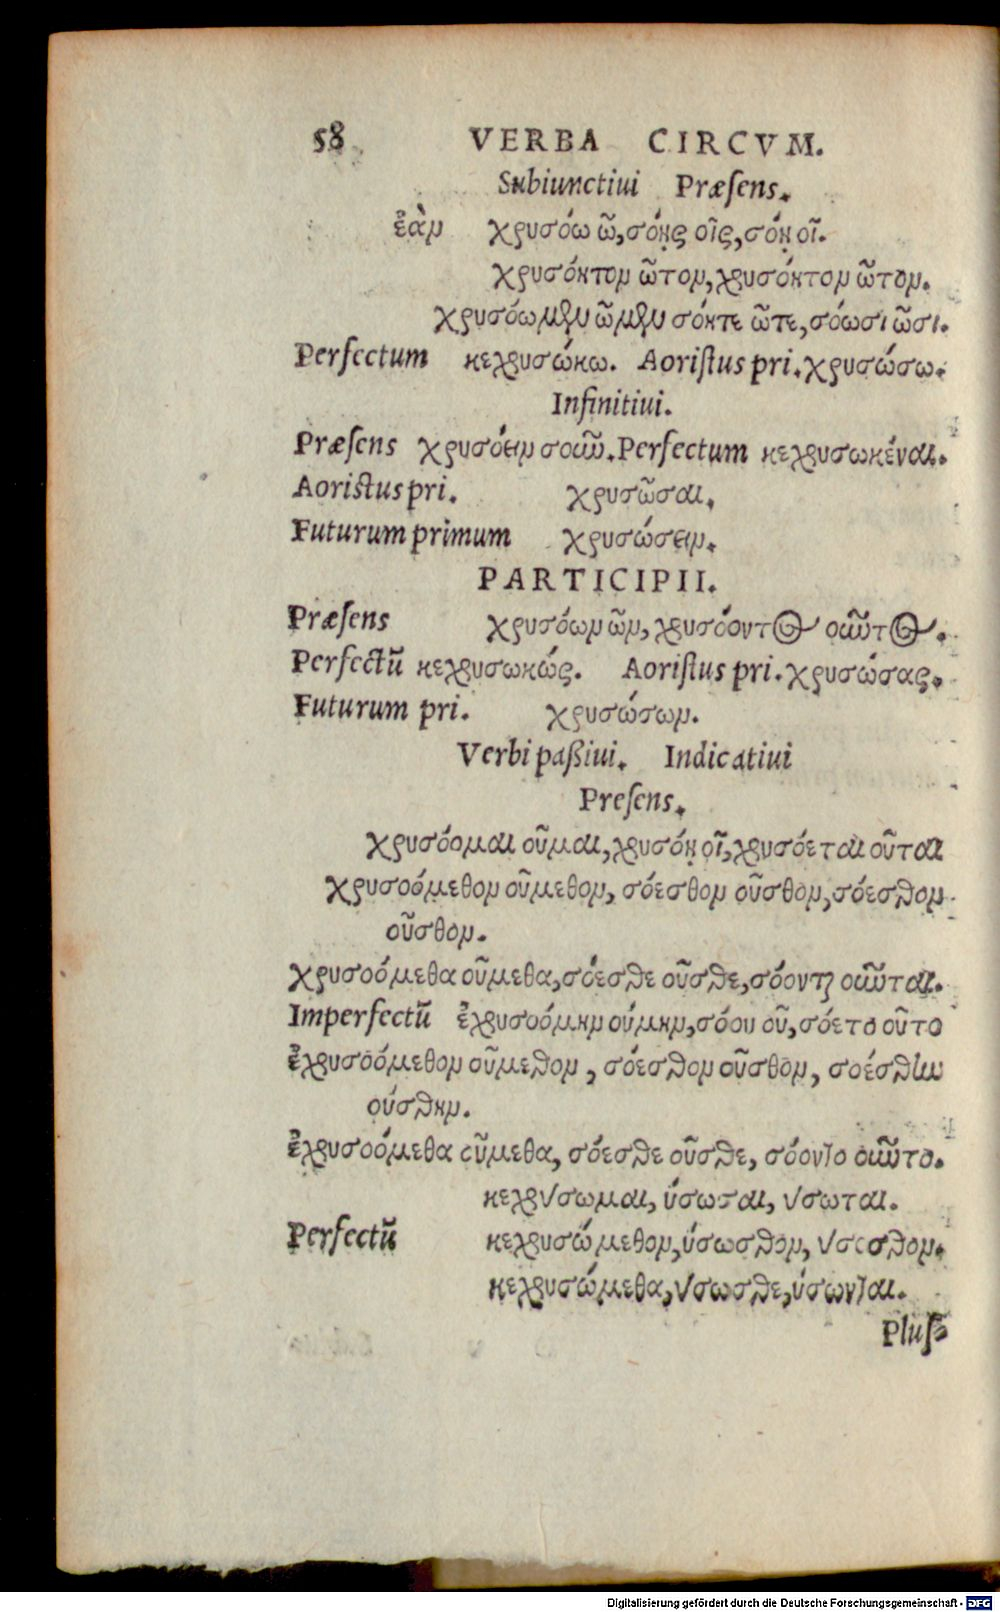 58 VERBA CIRCVM.
Subiunctiui Præsens.
ἐὰν χρυσόω ῶ, σόῃς οῖς, σόῃ οῖ.
χρυσόητον ῶτον, χρυσόητον ῶτον.
χρυσόωμεν ῶμεν σόητε ῶτε, σόωσι ῶσι.
Perfectum κεχρυσώκω. Aoristus pri. χρυσώσω.
Infinitiui.
Præsens χρυσόειν σοῦν. Perfectum κεχρυσωκέναι.
Aoristus pri. χρυσῶσαι.
Futurum primum χρυσώσειν.
PARTICIPII.
Præsens χρυσόων ῶν, χρυσόοντος οῦντος.
Perfectũ κεχρυσωκώς. Aoristus pri. χρυσώσας.
Futurum pri. χρυσώσων.
Verbi paßiui. Indicatiui
Presens.
χρυσόομαι οῦμαι, χρυσόῃ οῖ, χρυσόεται οῦται
χρυσοόμεθον οῦμεθον, σόεσθον οῦσθον, σόεσθον
οῦσθον.
χρυσοόμεθα οῦμεθα, σόεσθε οῦσθε, σόονται οῦνται.
Imperfectũ ἐχρυσοόμην ούμην, σόου οῦ, σόετο οῦτο
ἐχρυσοόμεθον οῦμεθον, σόεσθον οῦσθον, σοέσθην
ούσθην.
ἐχρυσοόμεθα οῦμεθα, σόεσθε οῦσθε, σόοντο οῦντο.
κεχρύσωμαι, ύσωσαι, ύσωται.
Perfectũ κεχρυσώμεθον, ύσωσθον, ύσωσθον.
κεχρυσώμεθα, ύσωσθε, ύσωνται.
Plus=
Digitalisierung gefördert durch die Deutsche Forschungsgemeinschaft - DFG